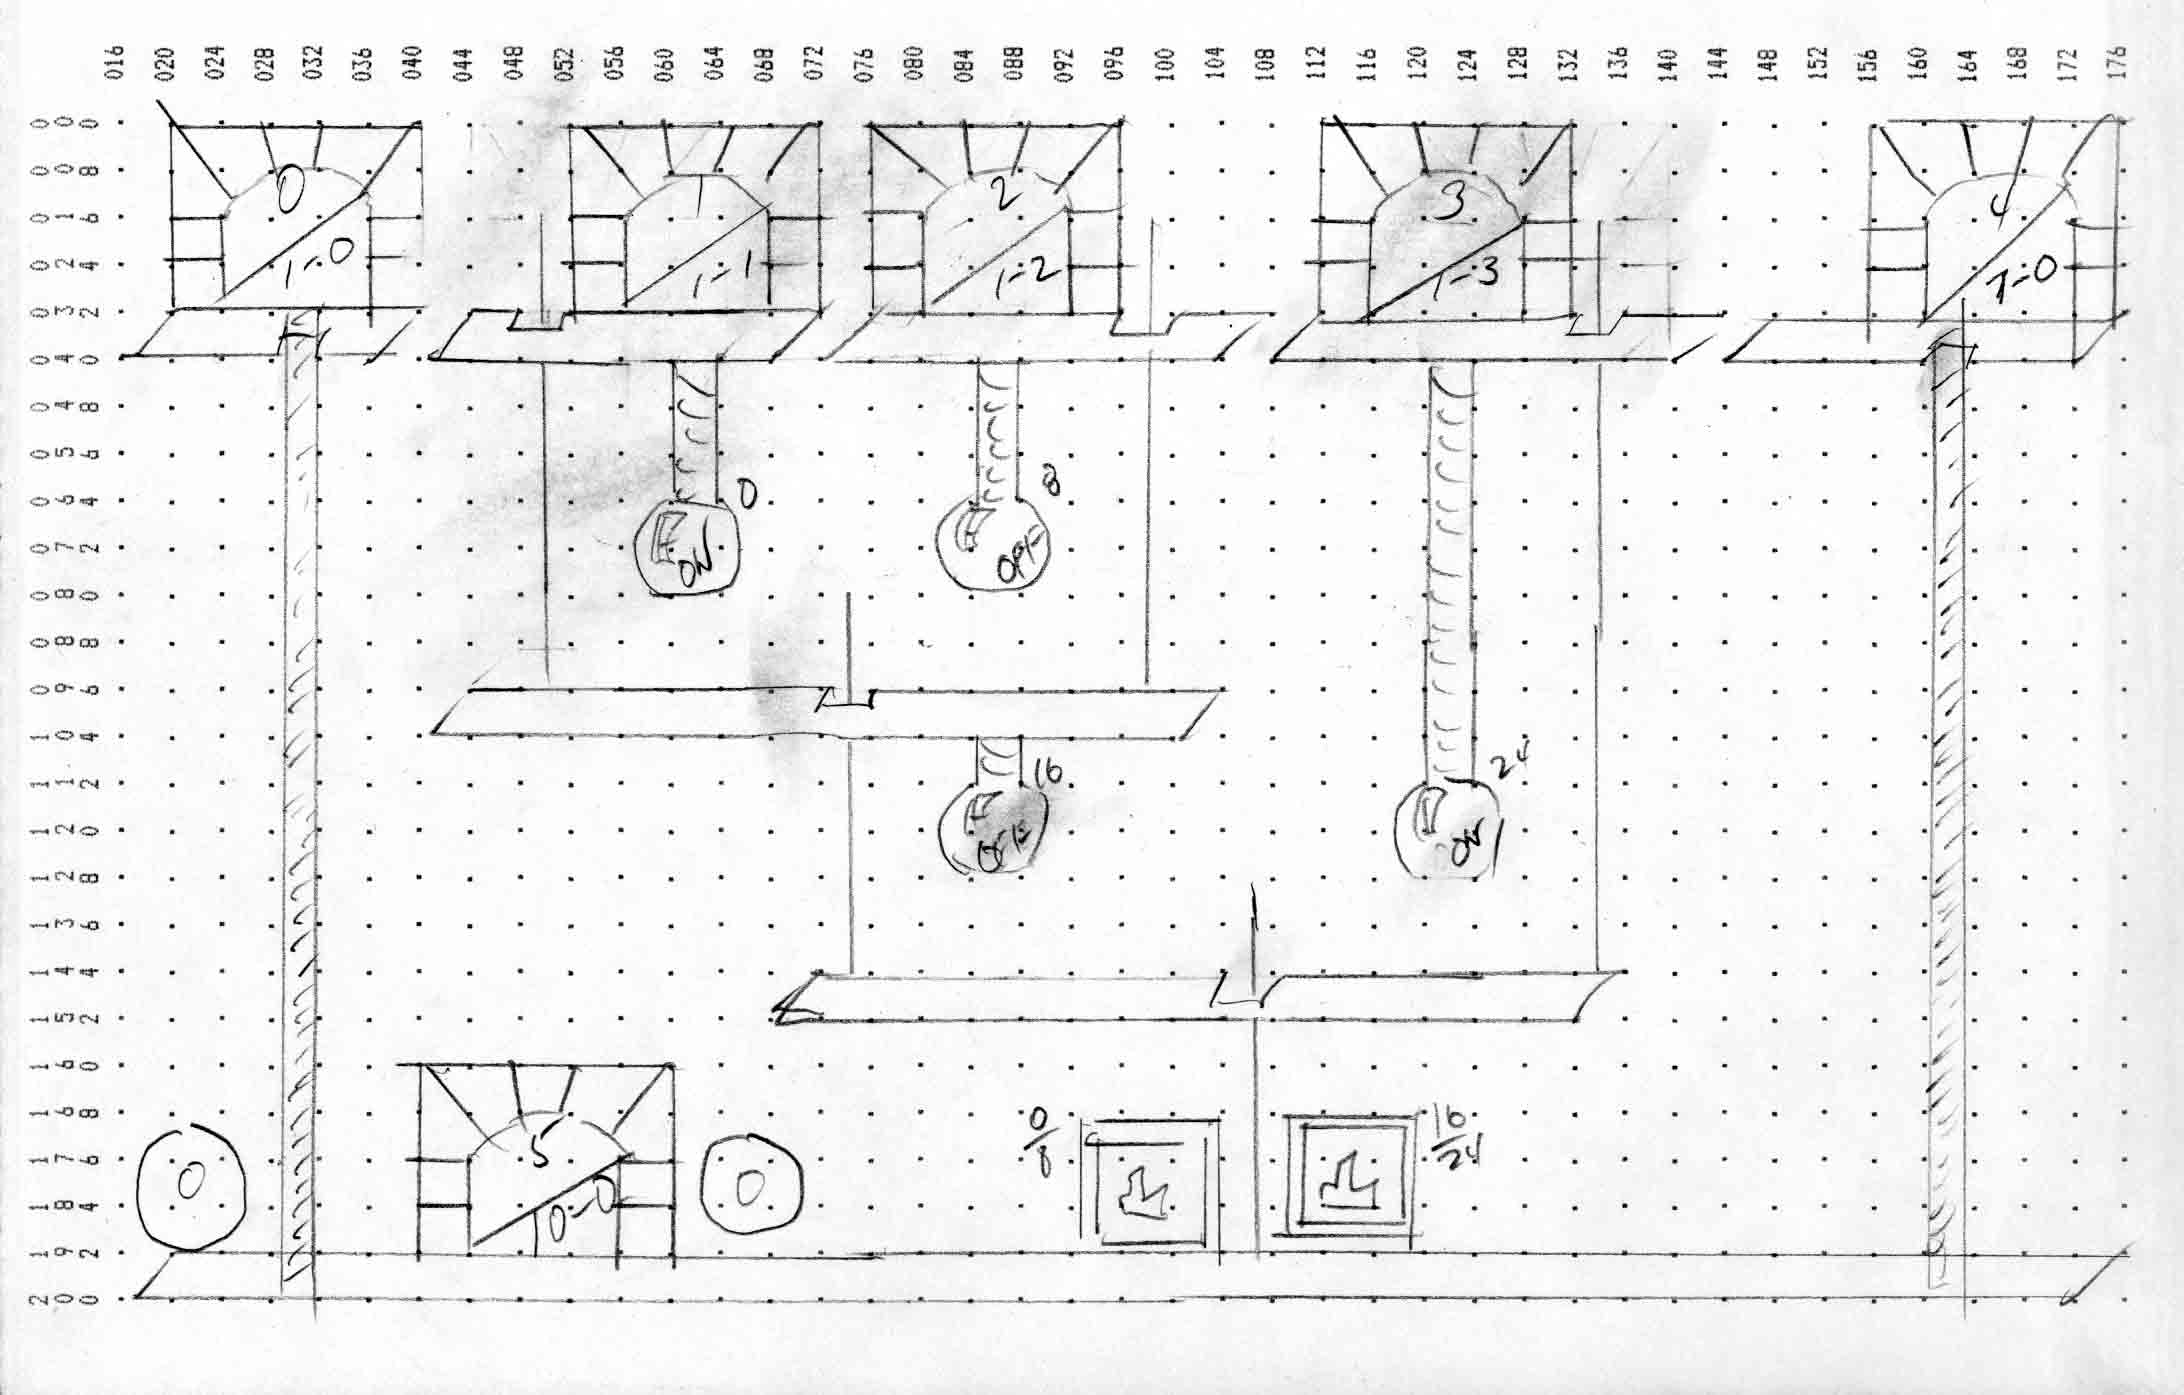 016 020 024 028 032 036 040 044 048 052 056 060 064 068 072 076 080 084 088 092 096 100 104 108 112 116 120 124 128 132 136 140 144 148 152 156 160 164 168 172 176
000
008
016
024
032
040
048
056
064
072
080
088
096
104
112
120
128
136
144
152
160
168
176
184
192
200
0
1-0
1
1-1
2
1-2
3
1-3
4
1-0
0
ON
8
OFF
16
OFF
24
ON
5
0-0
0
0
0/8
16/24